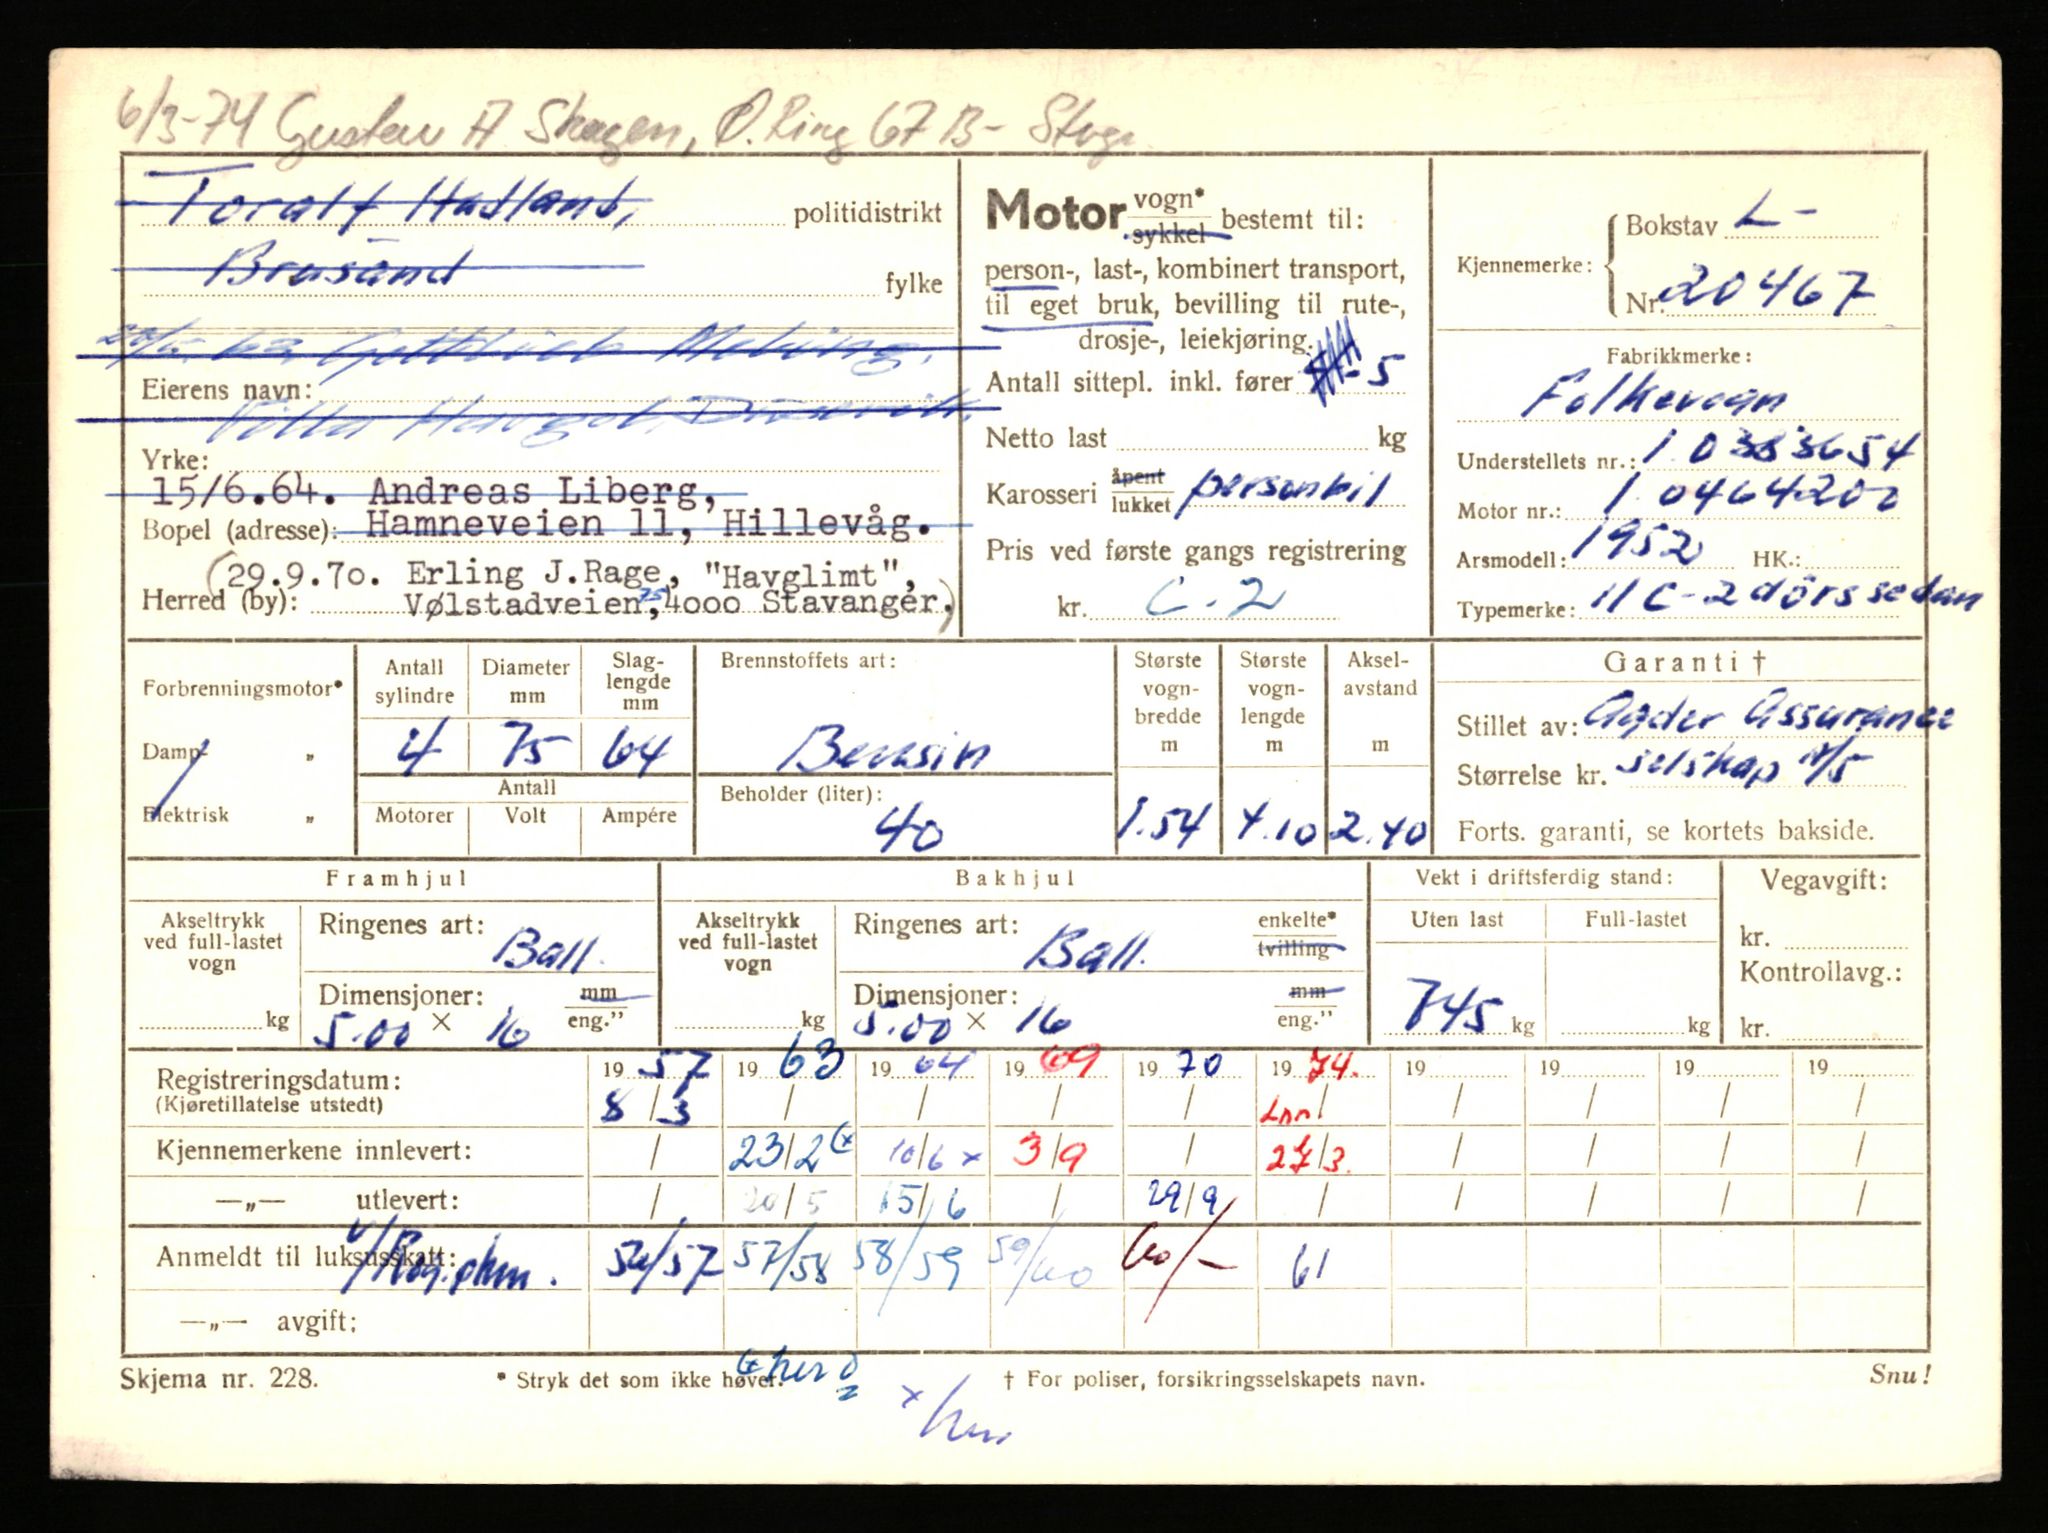 6/3-74 Gustav A Skagen, Ø. Ring 67 B - Stvgr.
Toralf Hadland, politidistrikt
Brusand fylke
63 Gottlieb
Eierens navn:
Villa
Yrke:
15/6.64. Andreas Liberg,
Bopel (adresse): Hamneveien 11, Hillevåg.
(29.9.70. Erling J.Rage, "Havglimt",
Herred (by): Vølstadveien 75, 4000 Stavanger.)
Motor vogn* sykkel bestemt til:
person-, last-, kombinert transport,
til eget bruk, bevilling til rute-,
drosje-, leiekjøring.
Antall sittepl. inkl. fører 5
Netto last kg
Karosseri åpent lukket personbil
Pris ved første gangs registrering
kr. C-2
Kjennemerke: Bokstav L-
Nr. 20467
Fabrikkmerke:
Folkevogn
Understellets nr.: 1 0383654
Motor nr.: 1 0464200
Arsmodell: 1952 HK.:
Typemerke: 11 C-2 dörs sedan
Forbrenningsmotor*
Damp- „
Elektrisk „
Antall sylindre Diameter mm Slag-lengde mm
4 75 64
Antall
Motorer Volt Ampére
Brennstoffets art:
Bensin
Beholder (liter):
40
Største vogn-bredde m Største vogn-lengde m Aksel-avstand m
1.54 4.10 2.40
Garanti †
Stillet av: Agder Assurance
Størrelse kr. selskap A/S
Forts. garanti, se kortets bakside.
Framhjul
Akseltrykk ved full-lastet vogn
kg
Ringenes art: Ball.
Dimensjoner: mm eng."
5.00 × 16
Bakhjul
Akseltrykk ved full-lastet vogn
kg
Ringenes art: Ball. enkelte* tvilling
Dimensjoner: mm eng."
5.00 × 16
Vekt i driftsferdig stand:
Uten last Full-lastet
745 kg kg
Vegavgift:
kr.
Kontrollavg.:
kr.
19 57 19 63 19 64 19 69 19 70 19 74. 19 19 19 19
Registreringsdatum:
(Kjøretillatelse utstedt) 8/3 / / / / Lnn / / / / /
Kjennemerkene innlevert: / 23/2 (x 10/6 x 3/9 / 27/3. / / / /
—„— utlevert: / 20/5 15/6 / 29/9 / / / / /
Anmeldt til luksusskatt: 56/57 57/58 58/59 59/60 60/- 61
—„— avgift;
Skjema nr. 228. * Stryk det som ikke høver. † For poliser, forsikringsselskapets navn. Snu!